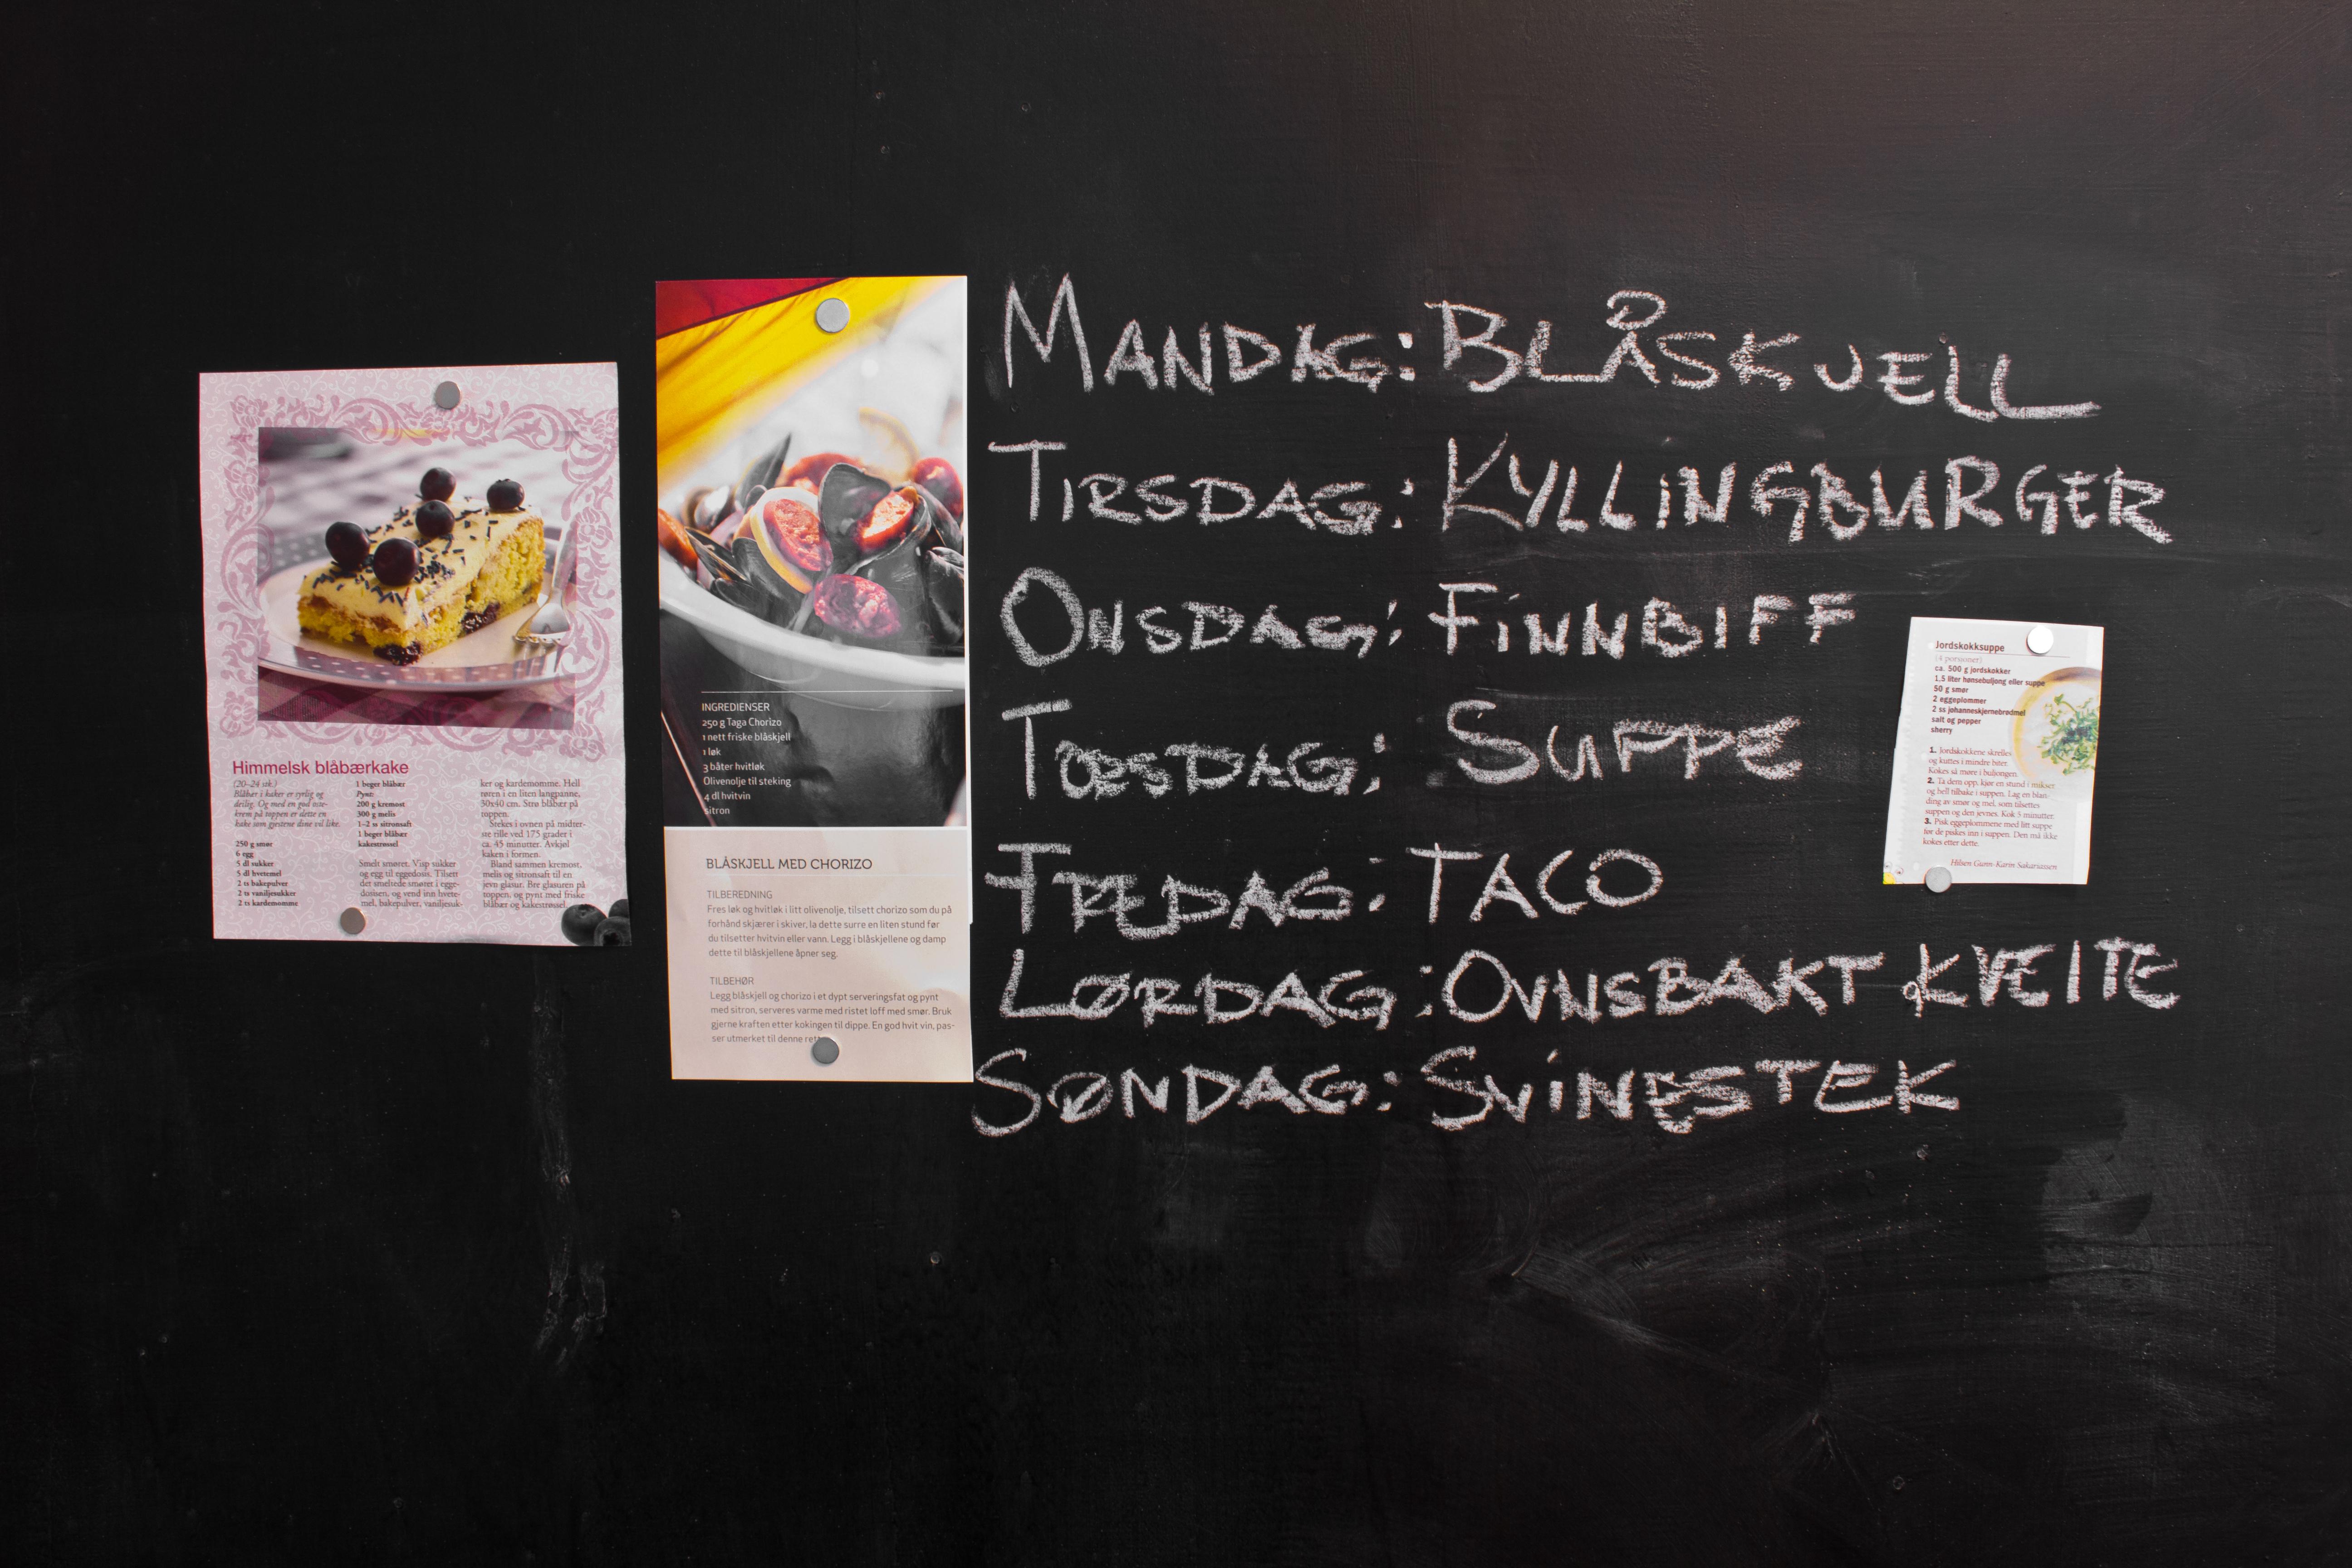 Himmelsk blåbærkake
(20–24 stk.)
Blåbær i kaker er syrlig og
deilig. Og med en god oste-
krem på toppen er dette en
kake som gjestene dine vil like.
250 g smør
6 egg
5 dl sukker
5 dl hvetemel
2 ts bakepulver
2 ts vaniljesukker
2 ts kardemomme
1 beger blåbær
Pynt:
200 g kremost
300 g melis
1–2 ss sitronsaft
1 beger blåbær
kakestrøssel
Smelt smøret. Visp sukker
og egg til eggedosis. Tilsett
det smeltede smøret i egge-
dosisen, og vend inn hvete-
mel, bakepulver, vaniljesuk-
ker og kardemomme. Hell
røren i en liten langpanne,
30x40 cm. Strø blåbær på
toppen.
Stekes i ovnen på midter-
ste rille ved 175 grader i
ca. 45 minutter. Avkjøl
kaken i formen.
Bland sammen kremost,
melis og sitronsaft til en
jevn glasur. Bre glasuren på
toppen, og pynt med friske
blåbær og kakestrøssel.
INGREDIENSER
250 g Taga Chorizo
1 nett friske blåskjell
1 løk
3 båter hvitløk
Olivenolje til steking
4 dl hvitvin
sitron
BLÅSKJELL MED CHORIZO
TILBEREDNING
Fres løk og hvitløk i litt olivenolje, tilsett chorizo som du på
forhånd skjærer i skiver, la dette surre en liten stund før
du tilsetter hvitvin eller vann. Legg i blåskjellene og damp
dette til blåskjellene åpner seg.
TILBEHØR
Legg blåskjell og chorizo i et dypt serveringsfat og pynt
med sitron, serveres varme med ristet loff med smør. Bruk
gjerne kraften etter kokingen til dippe. En god hvit vin, pas-
ser utmerket til denne
MANDAG: BLÅSKJELL
TIRSDAG: KYLLINGBURGER
ONSDAG: FINNBIFF
TORSDAG: SUPPE
FREDAG: TACO
LØRDAG: OVNSBAKT KVEITE
SØNDAG: SVINESTEK
Jordskokksuppe
(4 porsjoner)
ca. 500 g jordskokker
1,5 liter hønsebuljong eller suppe
50 g smør
2 eggeplommer
2 ss johanneskjernebrødmel
salt og pepper
sherry
1. Jordskokkene skrelles
og kuttes i mindre biter.
Kokes så møre i buljongen.
2. Ta dem opp, kjør en stund i mikser
og hell tilbake i suppen. Lag en blan-
ding av smør og mel, som tilsettes
suppen og den jevnes. Kok 5 minutter.
3. Pisk eggeplommene med litt suppe
før de piskes inn i suppen. Den må ikke
kokes etter dette.
Hilsen Gunn-Karin Sakariassen